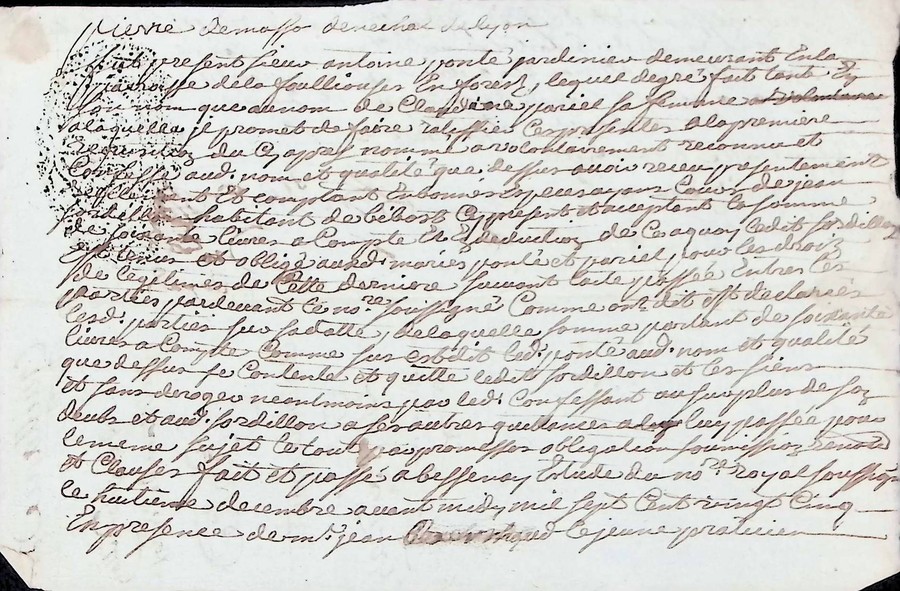 pierre demasso senechal de lyon
fut present sieur antoine ponté jardinier demeurant En la
parroisse de la foulliouse En forest, lequel de gré fait tant En
son nom que au nom de Claudine pariel sa femme a volontaire
a laquelle je promet de faire ratiffier Ces presentes a la premiere
Requisition du Cy apres nomme a volontairement reconnu et
Confessé aud. nom et qualité que dessus avoir receu presentement
Reellement et comptant En bonnes Especes ayans Cours de jean
sordillon habitant de bibost Cy present et acceptant la somme
de soixante livres a Compte Et Deduction de Ce a quoy ledit sordillon
Est tenus et obligé aud. mariés ponté et pariel pour les droix
de legitimes de Cette derniere suivant lacte passée Entres les
parties pardevant le nore soussigné Comme ont dit Et declarés
lesd. parties sur sa datte, de laquelle somme portant de soixante
livres a Compte Comme sus est dit led. ponté aud. nom et qualité
que dessus se Contente et quitte ledit sordillon et les siens
et sans deroger neantmoins par led. Confessant au surplus de son
deubt et aud. sordillon a ses autres quittances a luy passée pour
le meme sujet le tout par promesses obligation soumission renond
et Clauses fait et passé a bessenay Etude du nore royal soussigné
le huitieme decembre avant midy mil sept Cent vingt Cinq
En presence de mr. jean le jeune praticien